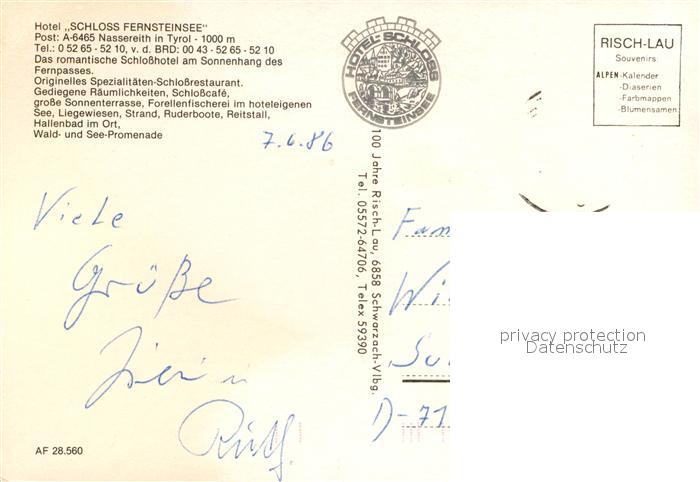 Hotel „SCHLOSS FERNSTEINSEE"
Post: A-6465 Nassereith in Tyrol - 1000 m
Tel.: 0 52 65 - 52 10, v. d. BRD: 00 43 - 52 65 - 52 10
Das romantische Schloßhotel am Sonnenhang des
Fernpasses.
Originelles Spezialitäten-Schloßrestaurant.
Gediegene Räumlichkeiten, Schloßcafé,
große Sonnenterrasse, Forellenfischerei im hoteleigenen
See, Liegewiesen, Strand, Ruderboote, Reitstall,
Hallenbad im Ort,
Wald- und See-Promenade
7.6.86
Viele
Grüße
Ruth
AF 28.560
HOTEL-SCHLOSS
FERNSTEINSEE
100 Jahre Risch-Lau, 6858 Schwarzach-Vlbg.
Tel. 05572-64706, Telex 59390
RISCH-LAU
Souvenirs
ALPEN-Kalender
-Diaserien
-Farbmappen
-Blumensamen
Fam
Wi
D-71
privacy protection
Datenschutz